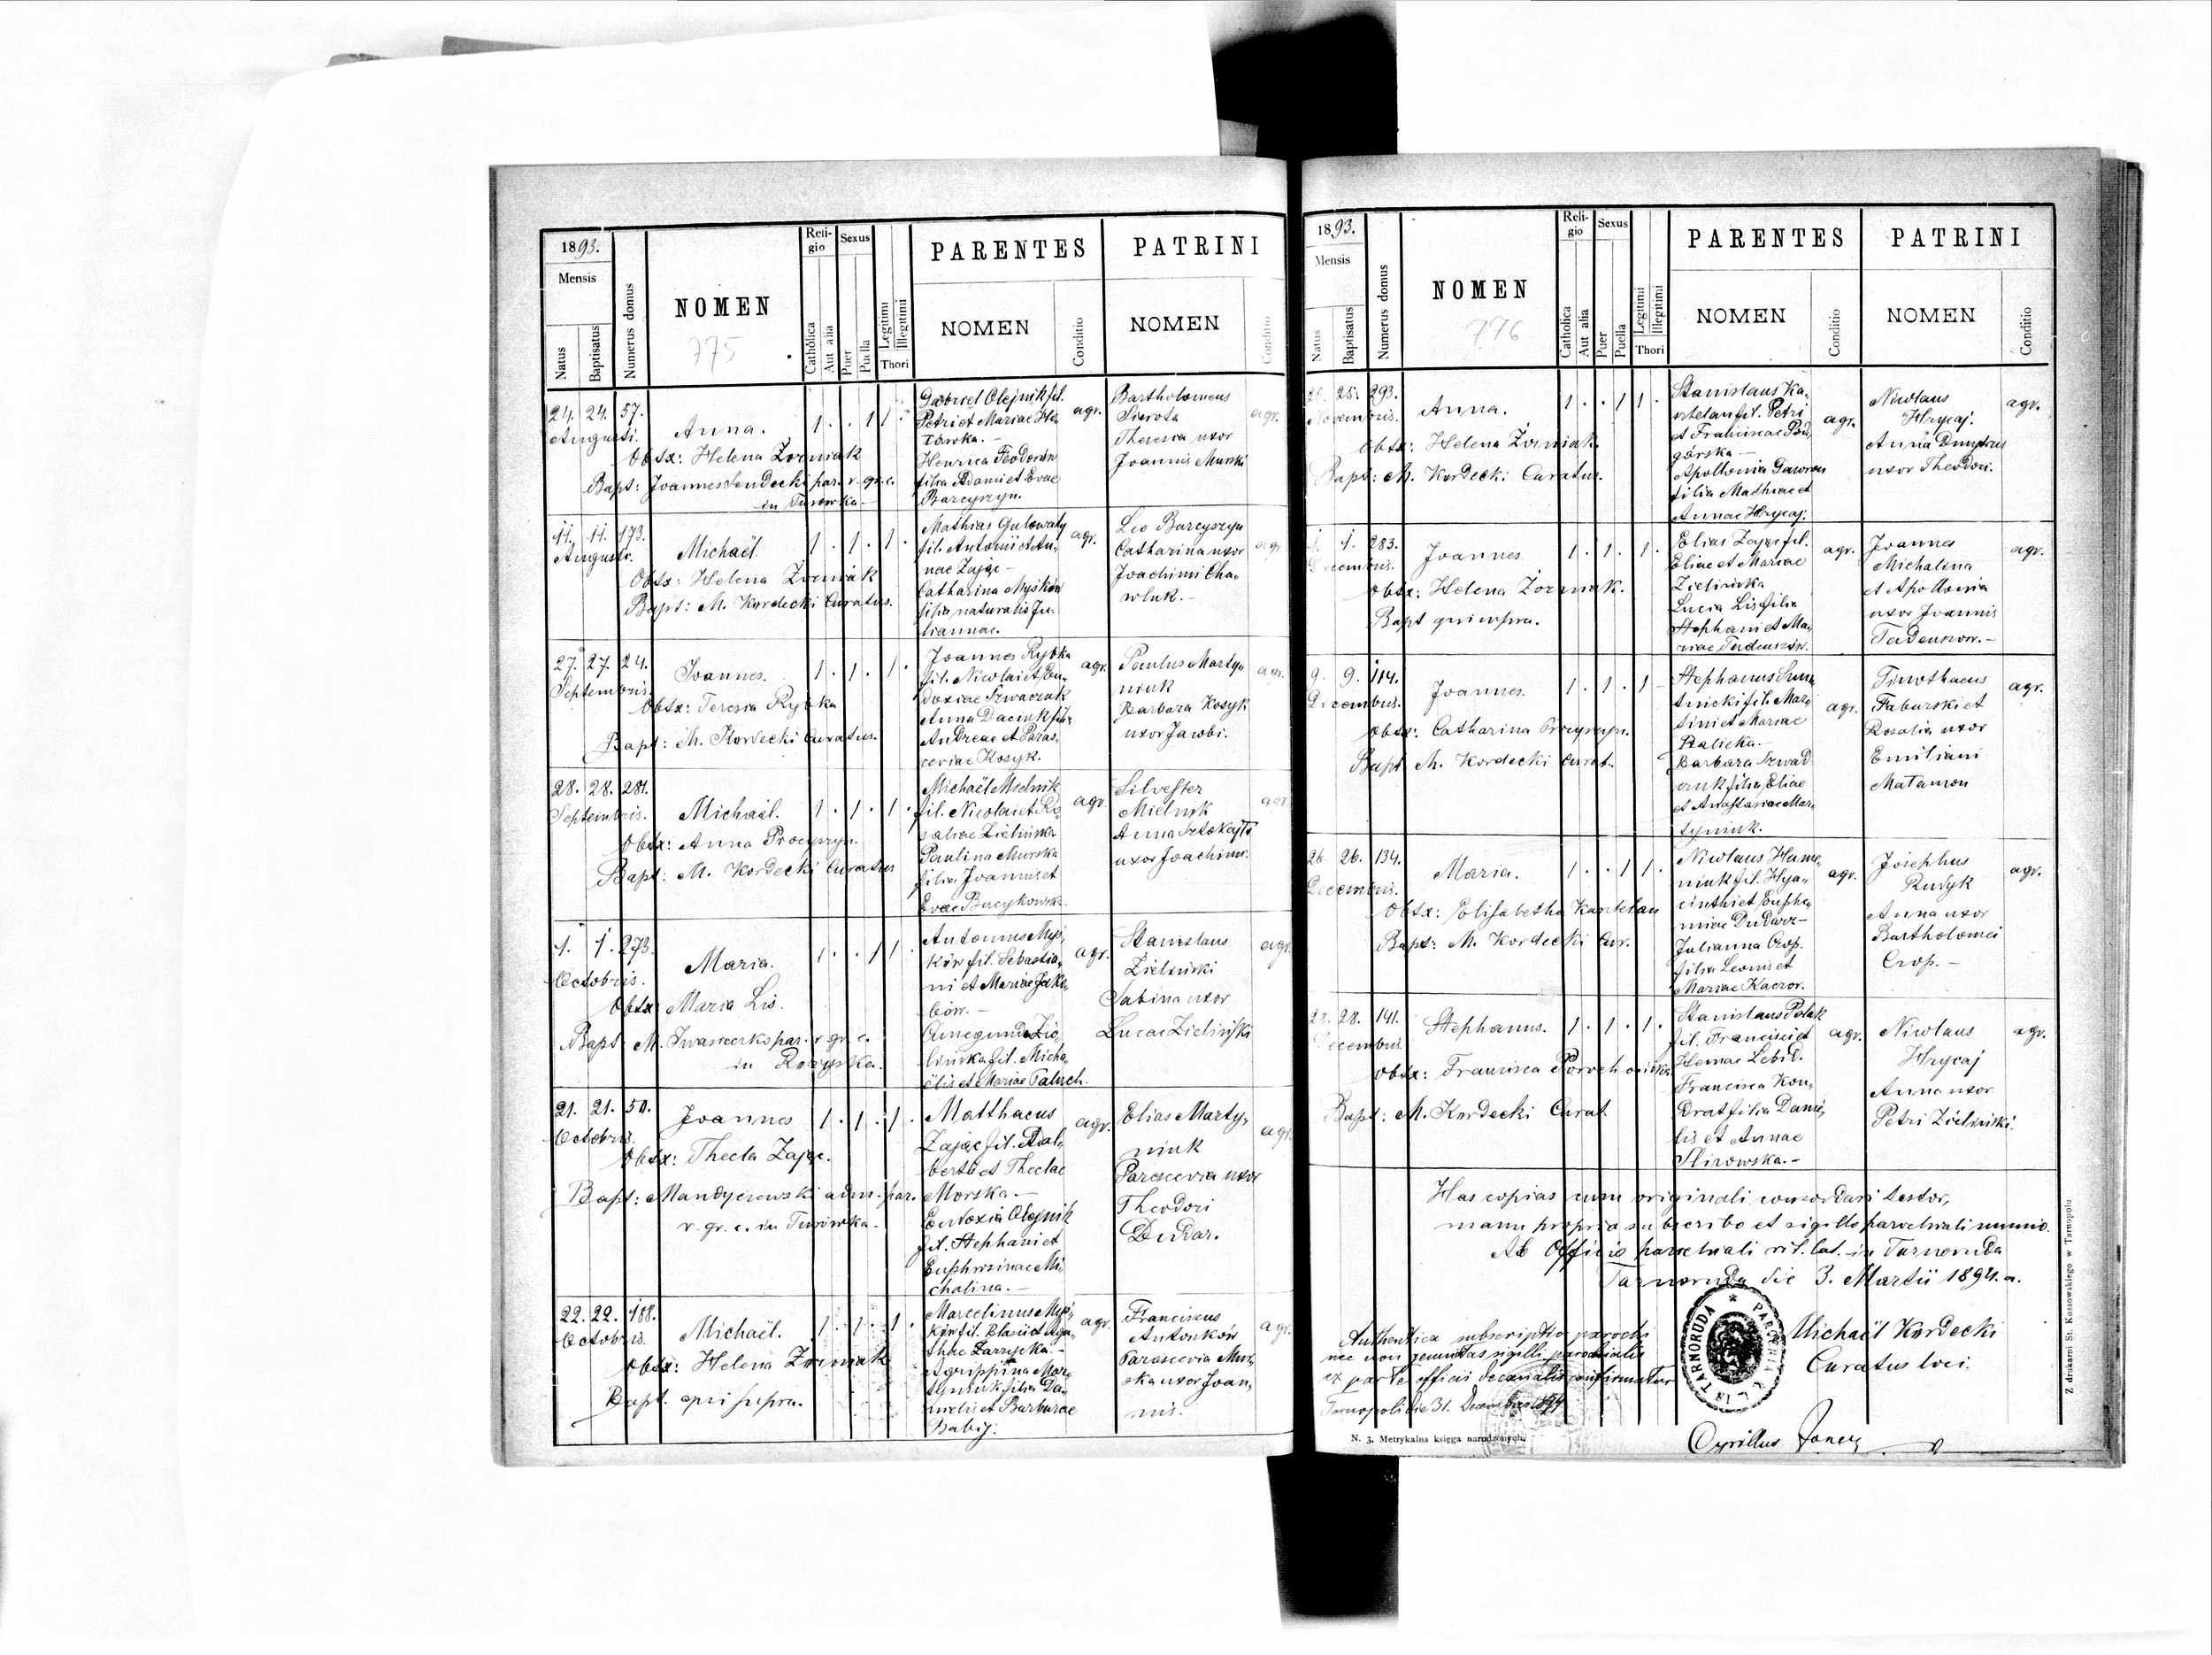 1893.
Mensis
Natus
Baptisatus
Numerus domus
NOMEN
775
Reli-
gio
Catholica
Aut alia
Sexus
Puer
Puella
Legitimi
Illegitimi
Thori
PARENTES
NOMEN
Conditio
PATRINI
NOMEN
Conditio
24. 24. 57.
Augusti.
Anna.
1 . . 1 1 .
Obstx: Helena Żorniak
Bapt: Joannes Sendecki par. r. gr. c.
in Turówka
Gabriel Olejnik fil.
Petri et Mariae
Henrica Feodorów
filia Adami et Evae
Barcyszyn.
agr.
Bartholomeus
Sirota
Theresia uxor
Joannis Murski
agr.
11. 11. 173.
Augusti.
Michaël.
1 . 1 . 1 .
Obstx: Helena Żorniak
Bapt: M. Kordecki Curatus.
Mathias Gulowaty
fil. Antonii et An-
nae Zając -
Catharina Myśków
filia naturalis Ju-
liannae.
agr.
Leo Barcyszyn
Catharina uxor
Joachimi Cha-
wluk. -
agr
27. 27. 24.
Septembris.
Joannes.
1 . 1 . 1 .
Obstx: Teresia Rybka
Bapt: M. Kordecki Curatus.
Joannes Rybka
fil. Nicolai et Eu-
doxiae Szwaczuk
Anna Daciuk fili-
Andreae et Paras-
ceviae Kosyk.
agr.
Paulus Marty-
niuk
Barbara Kosyk
uxor Jacobi.
28. 28. 281.
Septembris.
Michaël.
1 . 1 . 1 .
Obstx: Anna Procyszyn.
Bapt: M. Kordecki Curatus
Michaël Mielnik
fil. Nicolai et Ro-
saliae Zielińska
Paulina Murska
filia Joannis et
Evae Bucykowska.
agr.
Silvester
Mielnik
Anna
uxor Joachimi.
agr
1. 1. 273.
Octobris.
Maria.
1 . . 1 1
Obstx: Maria Lis.
Bapt M. par. r. gr. c.
in Rożyska.
Antonius Myś-
ków fil. Sebastia-
ni et Mariae Jaku-
bów. -
Cunegunda Zie-
lińska fil. Micha-
ëlis et Mariae Paluch.
agr.
Stanislaus
Zieliński
Sabina uxor
Lucae Zieliński
agr.
21. 21. 50.
Octobris.
Joannes
1 . 1 . 1 .
Obstx: Thecla Zając.
Bapt: Mandyczewski adm. par.
r. gr. c. in Turówka -
Matthaeus
Zając fil. Adal-
berti et Theclae
Morska -
Eudoxia Olejnik
fil. Stephani et
Euphrosinae Mi-
chalina. -
agr.
Elias Marty-
niuk
Parascevia uxor
Theodori
Dudar.
agr.
22. 22. 188.
Octobris.
Michaël.
1 . 1 . 1 .
Obstx: Helena Żorniak
Bapt. qui supra.
Marcelinus Myś-
ków fil. Blasii et Aga-
thae Zarzycka. -
Agrippina Mar-
tyniuk filia Da-
nielis et Barbarae
Babij.
agr.
Franciscus
Antonków
Parascevia Mur-
ska uxor Joan-
nis.
agr.
1893.
Mensis
Natus
Baptisatus
Numerus domus
NOMEN
776
Reli-
gio
Catholica
Aut alia
Sexus
Puer
Puella
Legitimi
Illegitimi
Thori
PARENTES
NOMEN
Conditio
PATRINI
NOMEN
Conditio
25. 25. 293.
Novembris.
Anna.
1 . . 1 1 .
Obstx: Helena Żorniak.
Bapt: M. Kordecki Curatus.
Stanislaus Ka-
sztelan fil. Petri
et Franciscae Pod-
górska -
Apollonia
filia Mathiae et
Annae Hrycaj.
agr.
Nicolaus
Hrycaj.
Anna Dmytrus
uxor Theodori.
agr.
1. 1. 283.
Decembris.
Joannes.
1 . 1 . 1 .
Obstx: Helena Żorniak.
Bapt qui supra.
Elias Zając fil.
Eliae et Mariae
Zielińska
Lucia Lis filia
Stephani et Ma-
riae
agr.
Joannes
Michalina
et Apollonia
uxor Joannis
agr.
9. 9. 114.
Decembris.
Joannes.
1 . 1 . 1 -
Obstx: Catharina Procyszyn.
Bapt M. Kordecki Curat.
Stephanus
fil. Mar-
tini et Mariae
Barbara
filia Eliae
et Anastasiae Mar-
tyniuk.
agr.
Timothaeus
Faburski et
Rosalia uxor
Emiliani
Matamon
agr.
26. 26. 134.
Decembris.
Maria.
1 . . 1 1 .
Obstx: Elisabetha Kasztelan
Bapt: M. Kordecki Cur.
Nicolaus Hume-
niuk fil. Hya-
cinthi et Euphe-
miae Dudarz -
Julianna Crop.
filia Leonis et
Mariae Kaczor.
agr.
Josephus
Rudyk
Anna uxor
Bartholomei
Crop. -
agr.
28. 28. 141.
Decembris.
Stephanus.
1 . 1 . 1 .
Obstx: Francisca
Bapt: M. Kordecki Curat
Stanislaus Polak
fil. Francisci et
Lebid.
Francisca Kon-
drat filia Danie-
lis et Annae
Slirowska. -
agr.
Nicolaus
Hrycaj
Anna uxor
Petri Zieliński.
agr.
Has copias cum originali concordari testor,
manu propria subscribo et sigillo parochiali munio.
Ab Officio parochiali rit. lat. in Tarnoruda
Tarnoruda die 3. Martii 1894. a.
Michaël Kordecki
Curatus loci.
Authentica subscriptio parochi
nec non genuitas sigilli parochialis
ex parte officii decanalis confirmatur
Tarnopoli die 31. Decembris 1894
N. 3. Metrykalna księga narodzonych.
Cyrillus
Z drukarni St. Kossowskiego w Tarnopolu